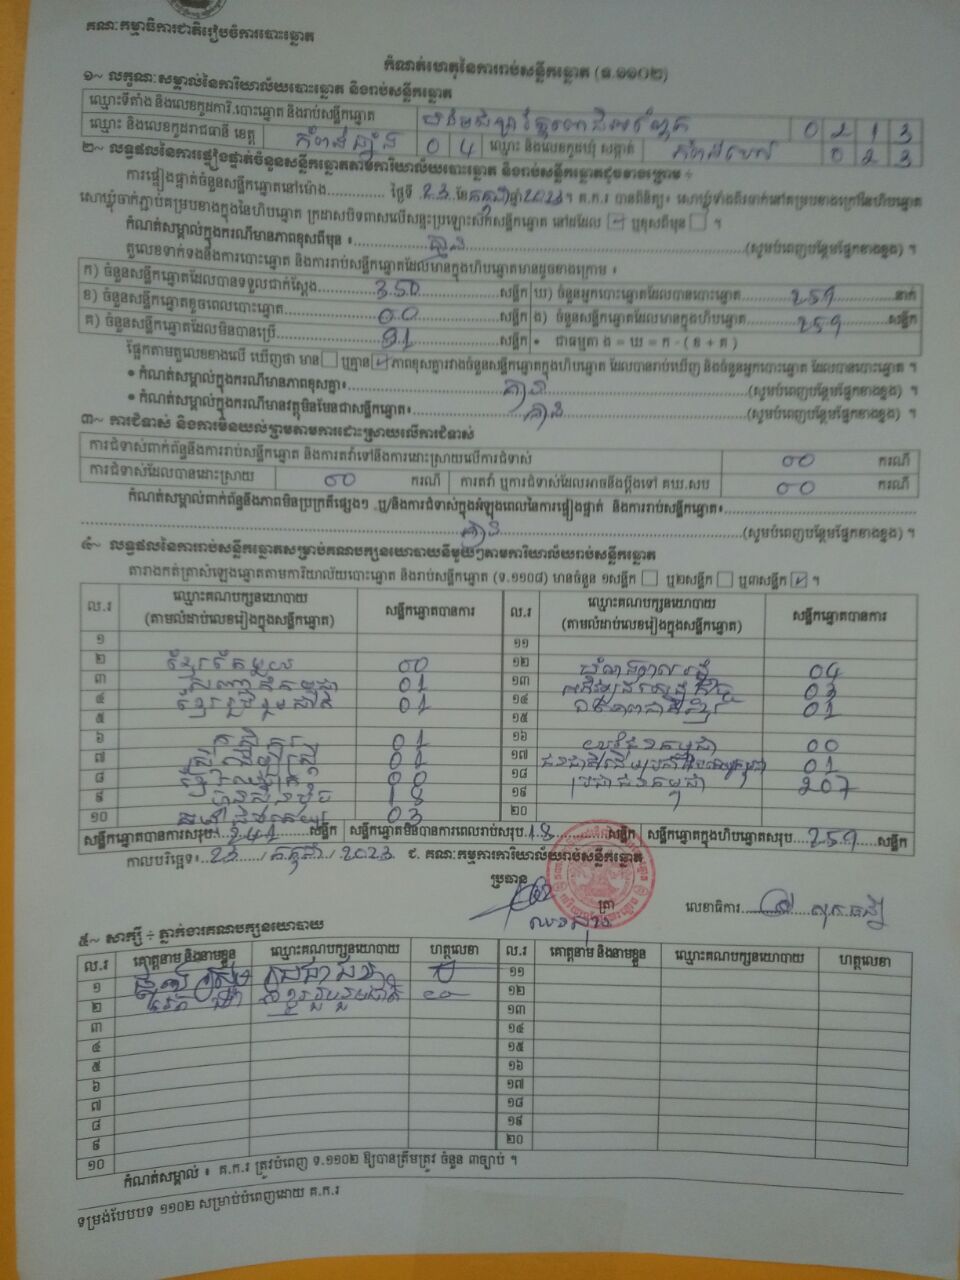 គណៈកម្មាធិការជាតិរៀបចំការបោះឆ្នោត
កំណត់ហេតុនៃការរាប់សន្លឹកឆ្នោត (ទ.១១០២)
១~ លក្ខណៈសម្គាល់នៃការិយាល័យបោះឆ្នោត និងរាប់សន្លឹកឆ្នោត
ឈ្មោះទីតាំង និងលេខកូដការិ.បោះឆ្នោត និងរាប់សន្លឹកឆ្នោត 0 2 1 3
ឈ្មោះ និងលេខកូដរាជធានី ខេត្ត កំពង់ឆ្នាំង 0 4 ឈ្មោះ និងលេខកូដឃុំ សង្កាត់ 0 2 3
២~ លទ្ធផលនៃការផ្ទៀងផ្ទាត់ចំនួនសន្លឹកឆ្នោតតាមការិយាល័យបោះឆ្នោត និងរាប់សន្លឹកឆ្នោតដូចខាងក្រោម ÷
ការផ្ទៀងផ្ទាត់ចំនួនសន្លឹកឆ្នោតនៅម៉ោង............ ថ្ងៃទី 23 ខែកក្កដាឆ្នាំ2023។ គ.ក.រ បានពិនិត្យ៖ សោឃ្លុំទាំងពីរចាក់នៅគម្របខាងក្រៅនៃហិបឆ្នោត
សោឃ្លុំចាក់ភ្ជាប់គម្របខាងក្នុងនៃហិបឆ្នោត ក្រដាសបិទពាសលើសន្ទះប្រឡោះស៊កសន្លឹកឆ្នោត នៅដដែល ☑ ឬខុសពីមុន ☐
កំណត់សម្គាល់ក្នុងករណីមានភាពខុសពីមុន ៖ គ្មាន (សូមបំពេញបន្ថែមផ្នែកខាងខ្នង) ។
តួលេខទាក់ទងនឹងការបោះឆ្នោត និងការរាប់សន្លឹកឆ្នោតដែលមានក្នុងហិបឆ្នោតមានដូចខាងក្រោម ៖
ក) ចំនួនសន្លឹកឆ្នោតដែលបានទទួលជាក់ស្តែង 350 សន្លឹក ឃ) ចំនួនអ្នកបោះឆ្នោតដែលបានបោះឆ្នោត 259 នាក់
ខ) ចំនួនសន្លឹកឆ្នោតខូចពេលបោះឆ្នោត 00 សន្លឹក ង) ចំនួនសន្លឹកឆ្នោតដែលមានក្នុងហិបឆ្នោត 259 សន្លឹក
គ) ចំនួនសន្លឹកឆ្នោតដែលមិនបានប្រើ 91 សន្លឹក • ជាធម្មតា ង = ឃ = ក - ( ខ + គ )
ផ្អែកតាមតួលេខខាងលើ ឃើញថា មាន ☐ ឬគ្មាន ☑ ភាពខុសគ្នារវាងចំនួនសន្លឹកឆ្នោតក្នុងហិបឆ្នោត ដែលបានរាប់ឃើញ និងចំនួនអ្នកបោះឆ្នោត ដែលបានបោះឆ្នោត ។
• កំណត់សម្គាល់ក្នុងករណីមានភាពខុសគ្នា៖ គ្មាន (សូមបំពេញបន្ថែមផ្នែកខាងខ្នង) ។
• កំណត់សម្គាល់ក្នុងករណីមានវត្ថុមិនមែនជាសន្លឹកឆ្នោត៖ គ្មាន (សូមបំពេញបន្ថែមផ្នែកខាងខ្នង) ។
៣~ ការជំទាស់ និងការមិនយល់ព្រមតាមការដោះស្រាយលើការជំទាស់
ការជំទាស់ពាក់ព័ន្ធនឹងការរាប់សន្លឹកឆ្នោត និងការតវ៉ាទៅនឹងការដោះស្រាយលើការជំទាស់ 00 ករណី
ការជំទាស់ដែលបានដោះស្រាយ 00 ករណី ការតវ៉ា ឬការជំទាស់ដែលអាចនឹងប្តឹងទៅ គឃ.សប 00 ករណី
កំណត់សម្គាល់ពាក់ព័ន្ធនឹងភាពមិនប្រក្រតីផ្សេងៗ .ឬ/និងការជំទាស់ក្នុងអំឡុងពេលនៃការផ្ទៀងផ្ទាត់ និងការរាប់សន្លឹកឆ្នោត៖
គ្មាន (សូមបំពេញបន្ថែមផ្នែកខាងខ្នង) ។
៤~ លទ្ធផលនៃការរាប់សន្លឹកឆ្នោតសម្រាប់គណបក្សនយោបាយនីមួយៗតាមការិយាល័យរាប់សន្លឹកឆ្នោត
តារាងកត់ត្រាសំឡេងឆ្នោតតាមការិយាល័យបោះឆ្នោត និងរាប់សន្លឹកឆ្នោត (ទ.១១០៨) មានចំនួន ១សន្លឹក ☐ ឬ២សន្លឹក ☐ ឬ៣សន្លឹក ☑ ។
ល.រ ឈ្មោះគណបក្សនយោបាយ (តាមលំដាប់លេខរៀងក្នុងសន្លឹកឆ្នោត) សន្លឹកឆ្នោតបានការ ល.រ ឈ្មោះគណបក្សនយោបាយ (តាមលំដាប់លេខរៀងក្នុងសន្លឹកឆ្នោត) សន្លឹកឆ្នោតបានការ
១ ១១
២ ខ្មែរតែមួយ 00 ១២ 04
៣ 01 ១៣ 03
៤ ខ្មែររួបរួមជាតិ 01 ១៤ 01
៥ ១៥
៦ កសិករ 01 ១៦ យុវជនកម្ពុជា 00
៧ ស្ត្រីដើម្បីស្ត្រី 01 ១៧ 01
៨ 00 ១៨ ប្រជាជនកម្ពុជា 207
៩ ហ៊្វុនស៊ិនប៉ិច 18 ១៩
១០ 03 ២០
សន្លឹកឆ្នោតបានការសរុប 241 សន្លឹក សន្លឹកឆ្នោតមិនបានការពេលរាប់សរុប 18 សន្លឹក សន្លឹកឆ្នោតក្នុងហិបឆ្នោតសរុប 259 សន្លឹក
កាលបរិច្ឆេទ៖ 23 / កក្កដា / 2023 ជ. គណៈកម្មការការិយាល័យរាប់សន្លឹកឆ្នោត
ប្រធាន
ត្រា
លេខាធិការ
៥~ សាក្សី ÷ ភ្នាក់ងារគណបក្សនយោបាយ
ល.រ គោត្តនាម និងនាមខ្លួន ឈ្មោះគណបក្សនយោបាយ ហត្ថលេខា ល.រ គោត្តនាម និងនាមខ្លួន ឈ្មោះគណបក្សនយោបាយ ហត្ថលេខា
១ ១១
២ ខ្មែររួបរួមជាតិ ១២
៣ ១៣
៤ ១៤
៥ ១៥
៦ ១៦
៧ ១៧
៨ ១៨
៩ ១៩
១០ ២០
កំណត់សម្គាល់ ៖ គ.ក.រ ត្រូវបំពេញ ទ.១១០២ ឱ្យបានត្រឹមត្រូវ ចំនួន ៣ច្បាប់ ។
ទម្រង់បែបបទ ១១០២ សម្រាប់បំពេញដោយ គ.ក.រ